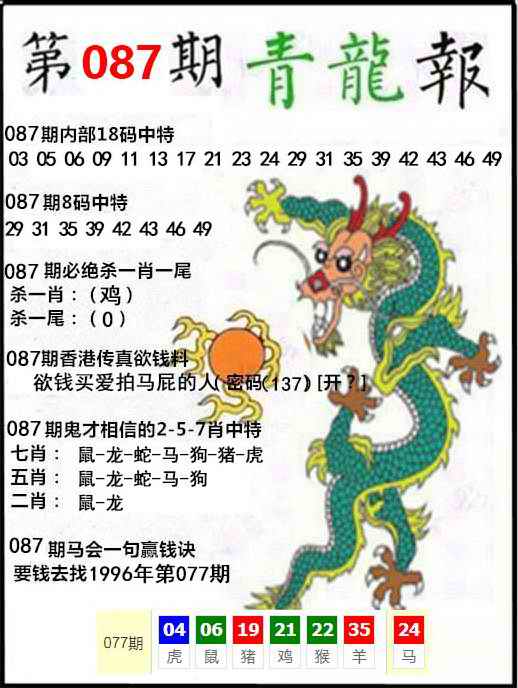 第087期 青龍報
087期内部18码中特
03 05 06 09 11 13 17 21 23 24 29 31 35 39 42 43 46 49
087期8码中特
29 31 35 39 42 43 46 49
087期必绝杀一肖一尾
杀一肖：（鸡）
杀一尾：（0）
087期香港传真欲钱料
欲钱买爱拍马屁的人(密码(137)[开？]
087期鬼才相信的2-5-7肖中特
七肖： 鼠-龙-蛇-马-狗-猪-虎
五肖： 鼠-龙-蛇-马-狗
二肖： 鼠-龙
087期马会一句赢钱诀
要钱去找1996年第077期
077期 04 06 19 21 22 35 24
虎 鼠 猪 鸡 猴 羊 马